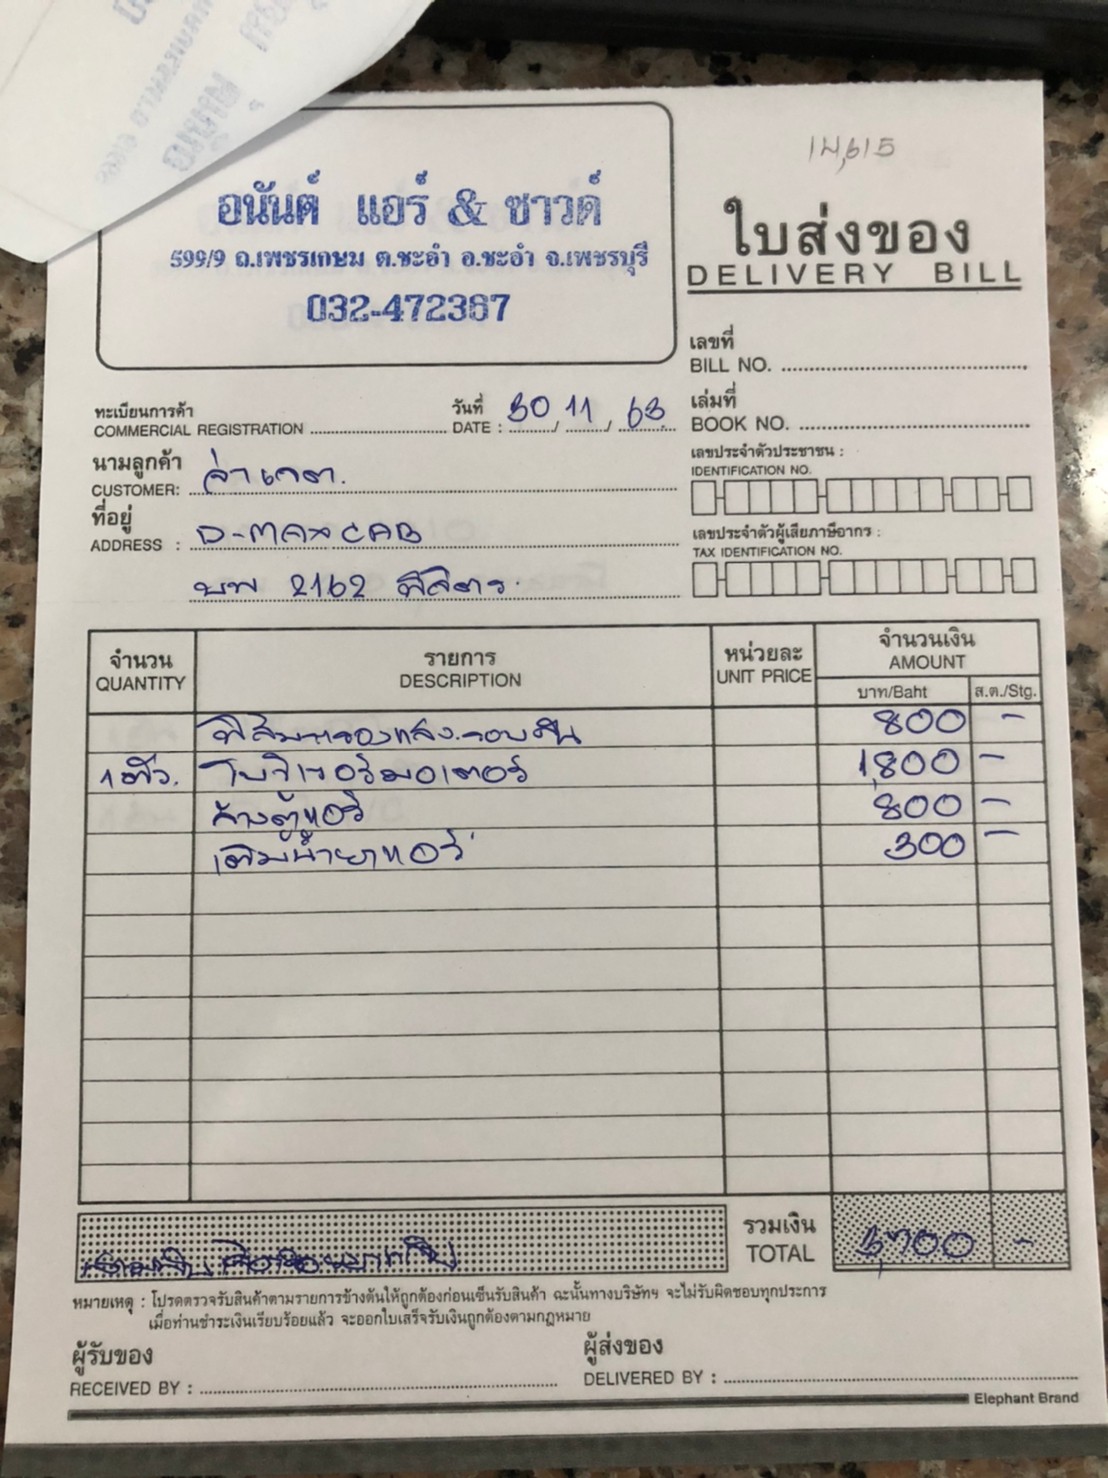 14,615
อนันต์ แอร์ & ซาวด์
599/9 ถ.เพชรเกษม ต.ชะอำ อ.ชะอำ จ.เพชรบุรี
032-472367
ใบส่งของ
DELIVERY BILL
เลขที่
BILL NO.
ทะเบียนการค้า
COMMERCIAL REGISTRATION
วันที่
DATE : 30/11/63
เล่มที่
BOOK NO.
นามลูกค้า
CUSTOMER:
เลขประจำตัวประชาชน :
IDENTIFICATION NO.
ที่อยู่
ADDRESS : D-MAX CAB
บพ 2162
เลขประจำตัวผู้เสียภาษีอากร :
TAX IDENTIFICATION NO.
จำนวน รายการ หน่วยละ จำนวนเงิน
QUANTITY DESCRIPTION UNIT PRICE AMOUNT
บาท/Baht ส.ต./Stg.
ฟิล์มกรองแสงรอบคัน 800 -
1 ตัว. โบว์เวอร์มอเตอร์ 1,800 -
ล้างตู้แอร์ 800 -
เติมน้ำยาแอร์ 300 -
รวมเงิน
TOTAL 3,700 -
หมายเหตุ : โปรดตรวจรับสินค้าตามรายการข้างต้นให้ถูกต้องก่อนเซ็นรับสินค้า ฉะนั้นทางบริษัทฯ จะไม่รับผิดชอบทุกประการ
เมื่อท่านชำระเงินเรียบร้อยแล้ว จะออกใบเสร็จรับเงินถูกต้องตามกฎหมาย
ผู้รับของ
RECEIVED BY :
ผู้ส่งของ
DELIVERED BY :
Elephant Brand